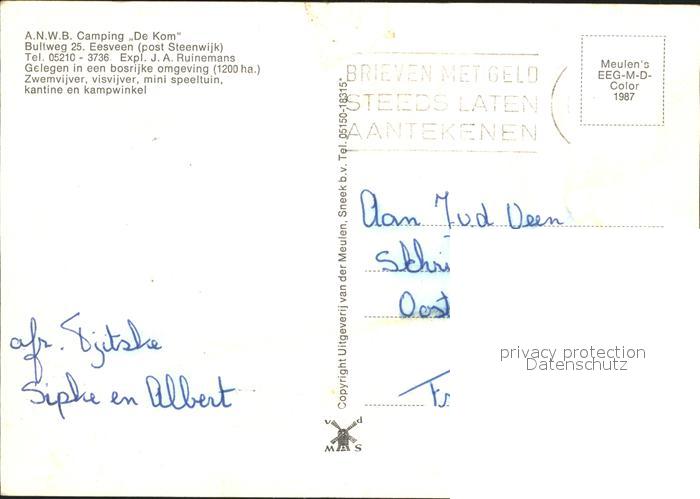 A.N.W.B. Camping „De Kom"
Bultweg 25. Eesveen (post Steenwijk)
Tel. 05210 - 3736 Expl. J. A. Ruinemans
Gelegen in een bosrijke omgeving (1200 ha.)
Zwemvijver, visvijver, mini speeltuin,
kantine en kampwinkel
BRIEVEN MET GELD
STEEDS LATEN
AANTEKENEN
Meulen's
EEG-M-D-
Color
1987
Copyright Uitgeverij van der Meulen, Sneek b.v. Tel. 05150-18315*
Aan J v.d Veen
Skhri
Oost
Fr
afz. Tjitske
Sipke en Albert
privacy protection
Datenschutz
v d
M S